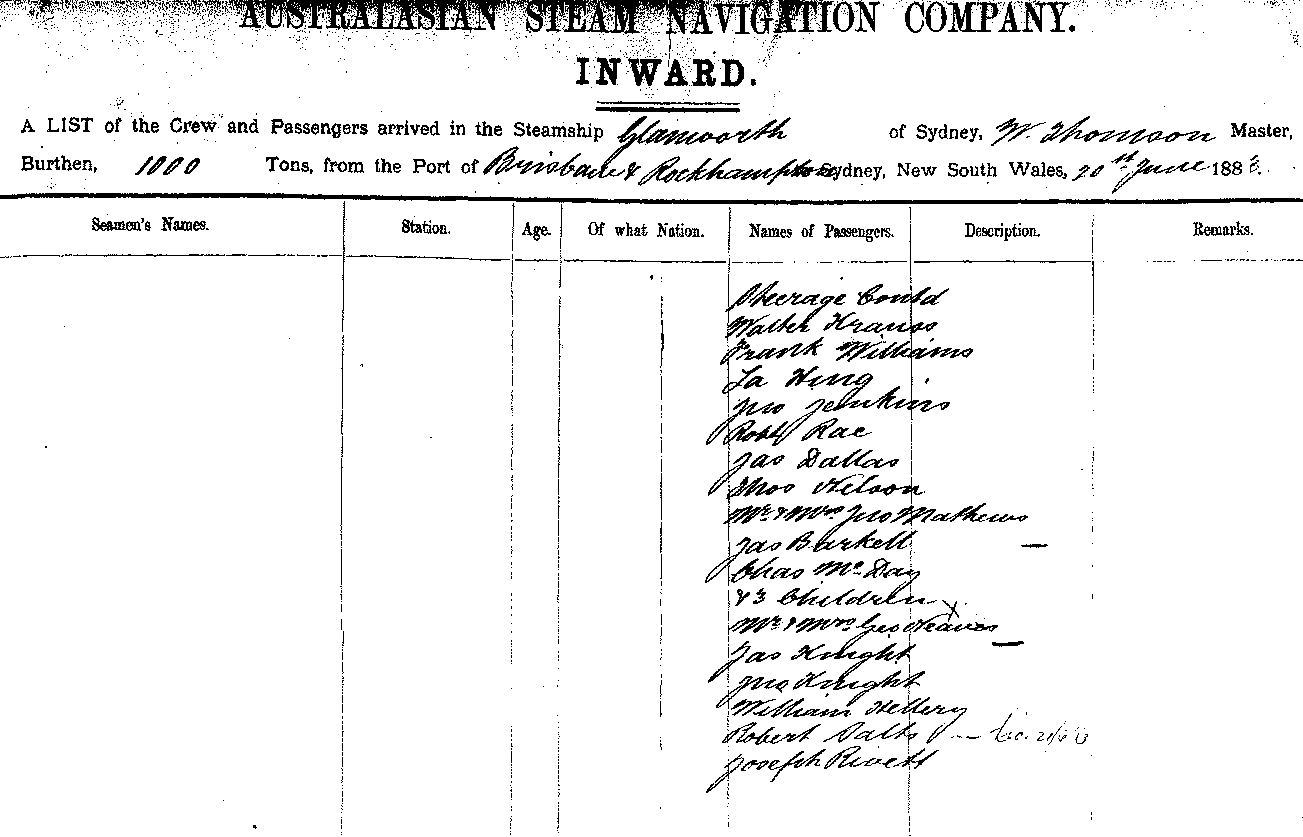 AUSTRALASIAN STEAM NAVIGATION COMPANY.
INWARD.
A LIST of the Crew and Passengers arrived in the Steamship Glanworth of Sydney, W. Thomson Master,
Burthen, 1000 Tons, from the Port of Brisbane & Rockhampton Sydney, New South Wales, 20th June 188
Seamen's Names. Station. Age. Of what Nation. Names of Passengers. Description. Remarks.
Steerage Contd
Walter Krauss
Frank Williams
Hing
Jno Jenkins
Robt Rae
Jas Dallas
Thos Nelson
Mr & Mrs Jno Mathews
Jas Barkell —
Chas Mc Day
& 3 Children x
Mr & Mrs Geo Neaves
Jas Knight —
Jno Knight
William Hellery
Robert Salts —
Joseph Rivett